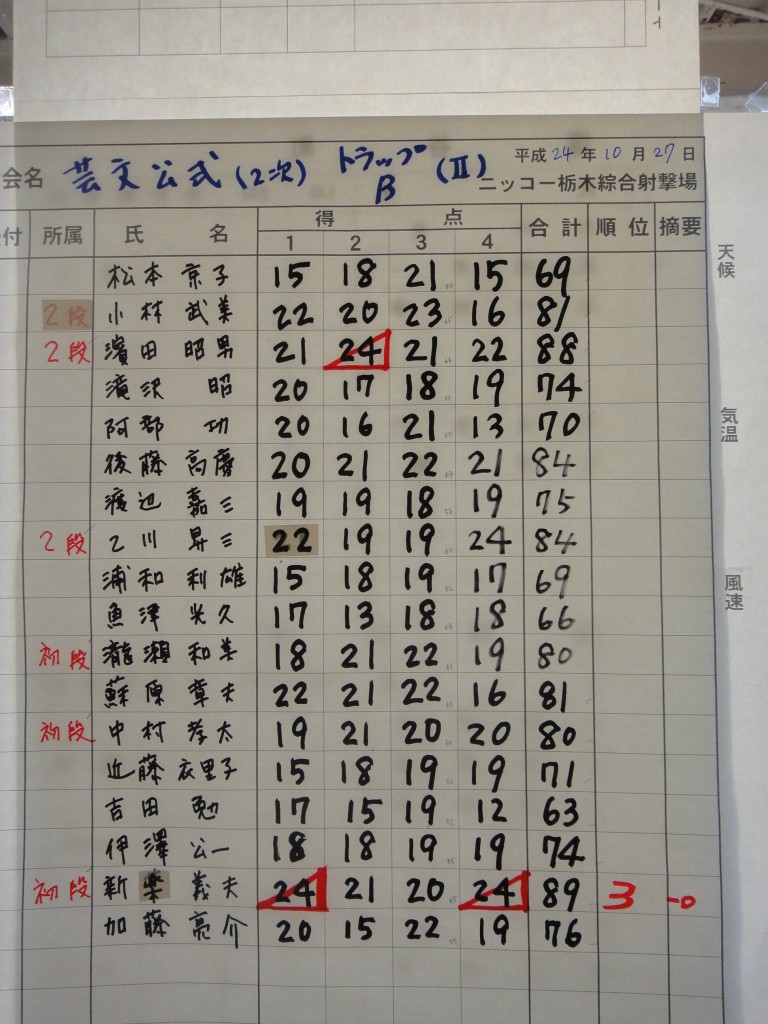 会名 芸文公式(2次) トラップB (II) 平成24年10月27日
ニッコー栃木綜合射撃場
付 所属 氏名 得点 合計 順位 摘要
1 2 3 4
松本 京子 15 18 21 15 69
2段 小林 武美 22 20 23 16 81
2段 濱田 昭男 21 24 21 22 88
滝沢 昭 20 17 18 19 74
阿部 功 20 16 21 13 70
後藤 高慶 20 21 22 21 84
渡辺 嘉三 19 19 18 19 75
2段 乙川 昇三 22 19 19 24 84
浦和 利雄 15 18 19 17 69
魚津 光久 17 13 18 18 66
初段 瀧瀬 和美 18 21 22 19 80
蘇原 章夫 22 21 22 16 81
初段 中村 孝太 19 21 20 20 80
近藤 衣里子 15 18 19 19 71
吉田 勉 17 15 19 12 63
伊澤 公一 18 18 19 19 74
初段 新楽 義夫 24 21 20 24 89 3 -0
加藤 亮介 20 15 22 19 76
天候
気温
風速